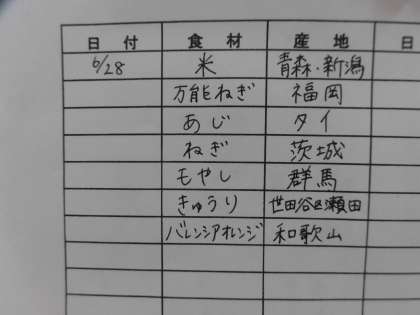 日付 食材 産地 日
6/28 米 青森・新潟
万能ねぎ 福岡
あじ タイ
ねぎ 茨城
もやし 群馬
きゅうり 世田谷区瀬田
バレンシアオレンジ 和歌山